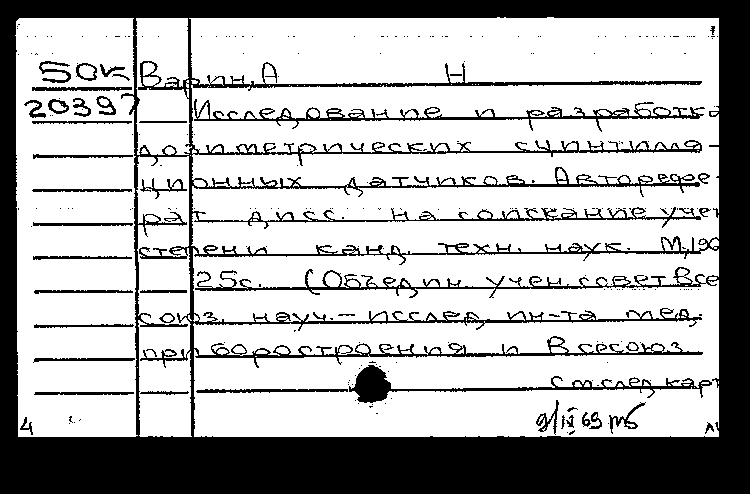 50к Варин, А Н
20397 Исследование и разработка
дозиметрических сцинтилля-
ционных датчиков. Авторефе-
рат дисс. на соискание учен
степени канд. техн. наук. М, 196
25с. (Объедин. учен. совет Все
союз. науч.-исслед. ин-та мед.
приборостроения и Всесоюз.
См. след. карт
9/IV 69
4